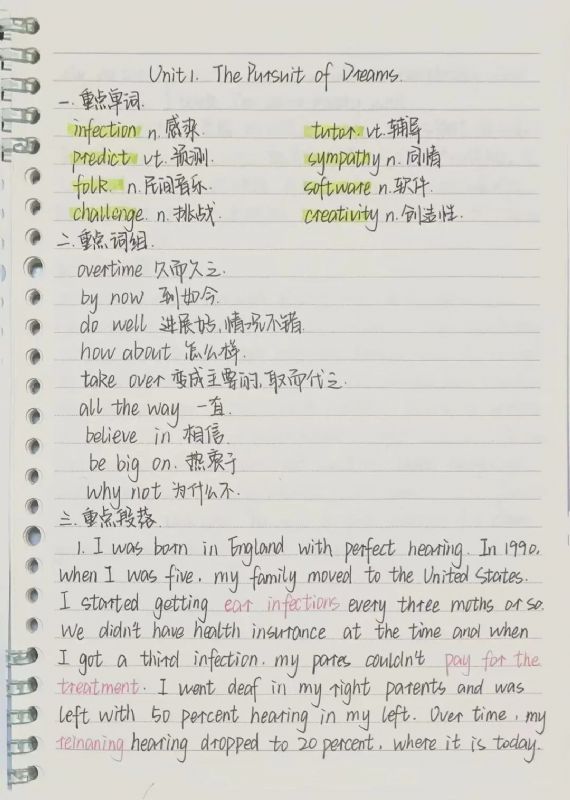 Unit 1. The Pursuit of Dreams.
一.重点单词.
infection n.感染. tutor vt.辅导
predict vt.预测. sympathy n.同情
folk. n.民间音乐. software n.软件.
challenge. n.挑战. creativity n.创造性.
二.重点词组.
overtime 久而久之.
by now 到如今.
do well 进展好,情况不错.
how about 怎么样.
take over 变成主要的,取而代之.
all the way 一直.
believe in 相信.
be big on. 热衷于
why not 为什么不.
三.重点段落.
1. I was born in England with perfect hearing. In 1990,
when I was five, my family moved to the United States.
I started getting ear infections every three moths or so.
We didn't have health insurance at the time and when
I got a third infection, my pares couldn't pay for the
treatment. I went deaf in my right parents and was
left with 50 percent hearing in my left. Over time, my
remaning hearing dropped to 20 percent, where it is today.